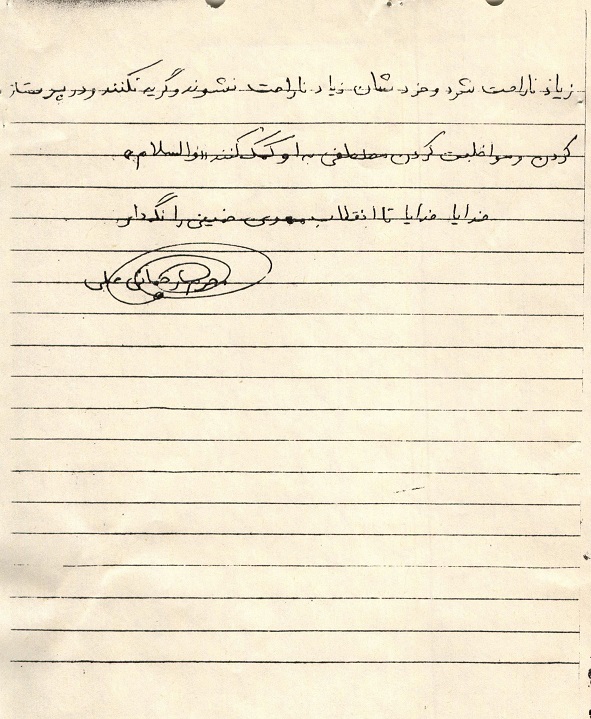 زیاد ناراحت نشود و خود شان زیاد ناراحت نشوند و گریه نکنند و در پرستار
کردن و مواظبت کردن مصطفی به او کمک کنند «والسلام»
خدایا خدایا تا انقلاب مهدی خمینی را نگهدار
علی